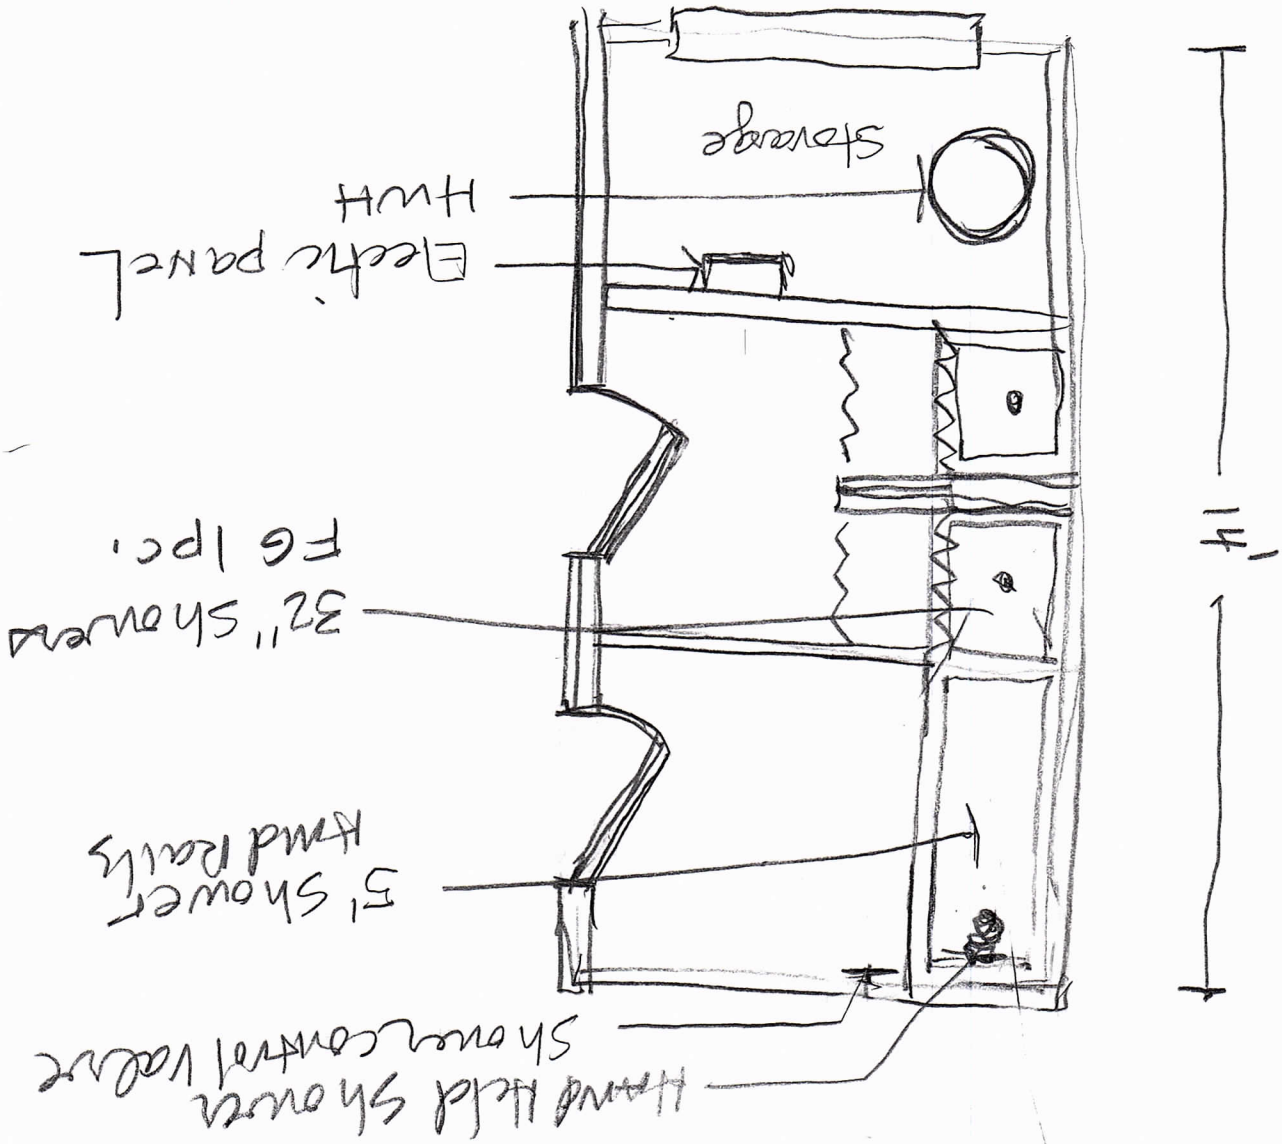 Hand Held Shower
Shower control valve
5' Shower
Hand Rails
14'
32" Showers
FG 1pc.
Electic panel
HWH
Storage